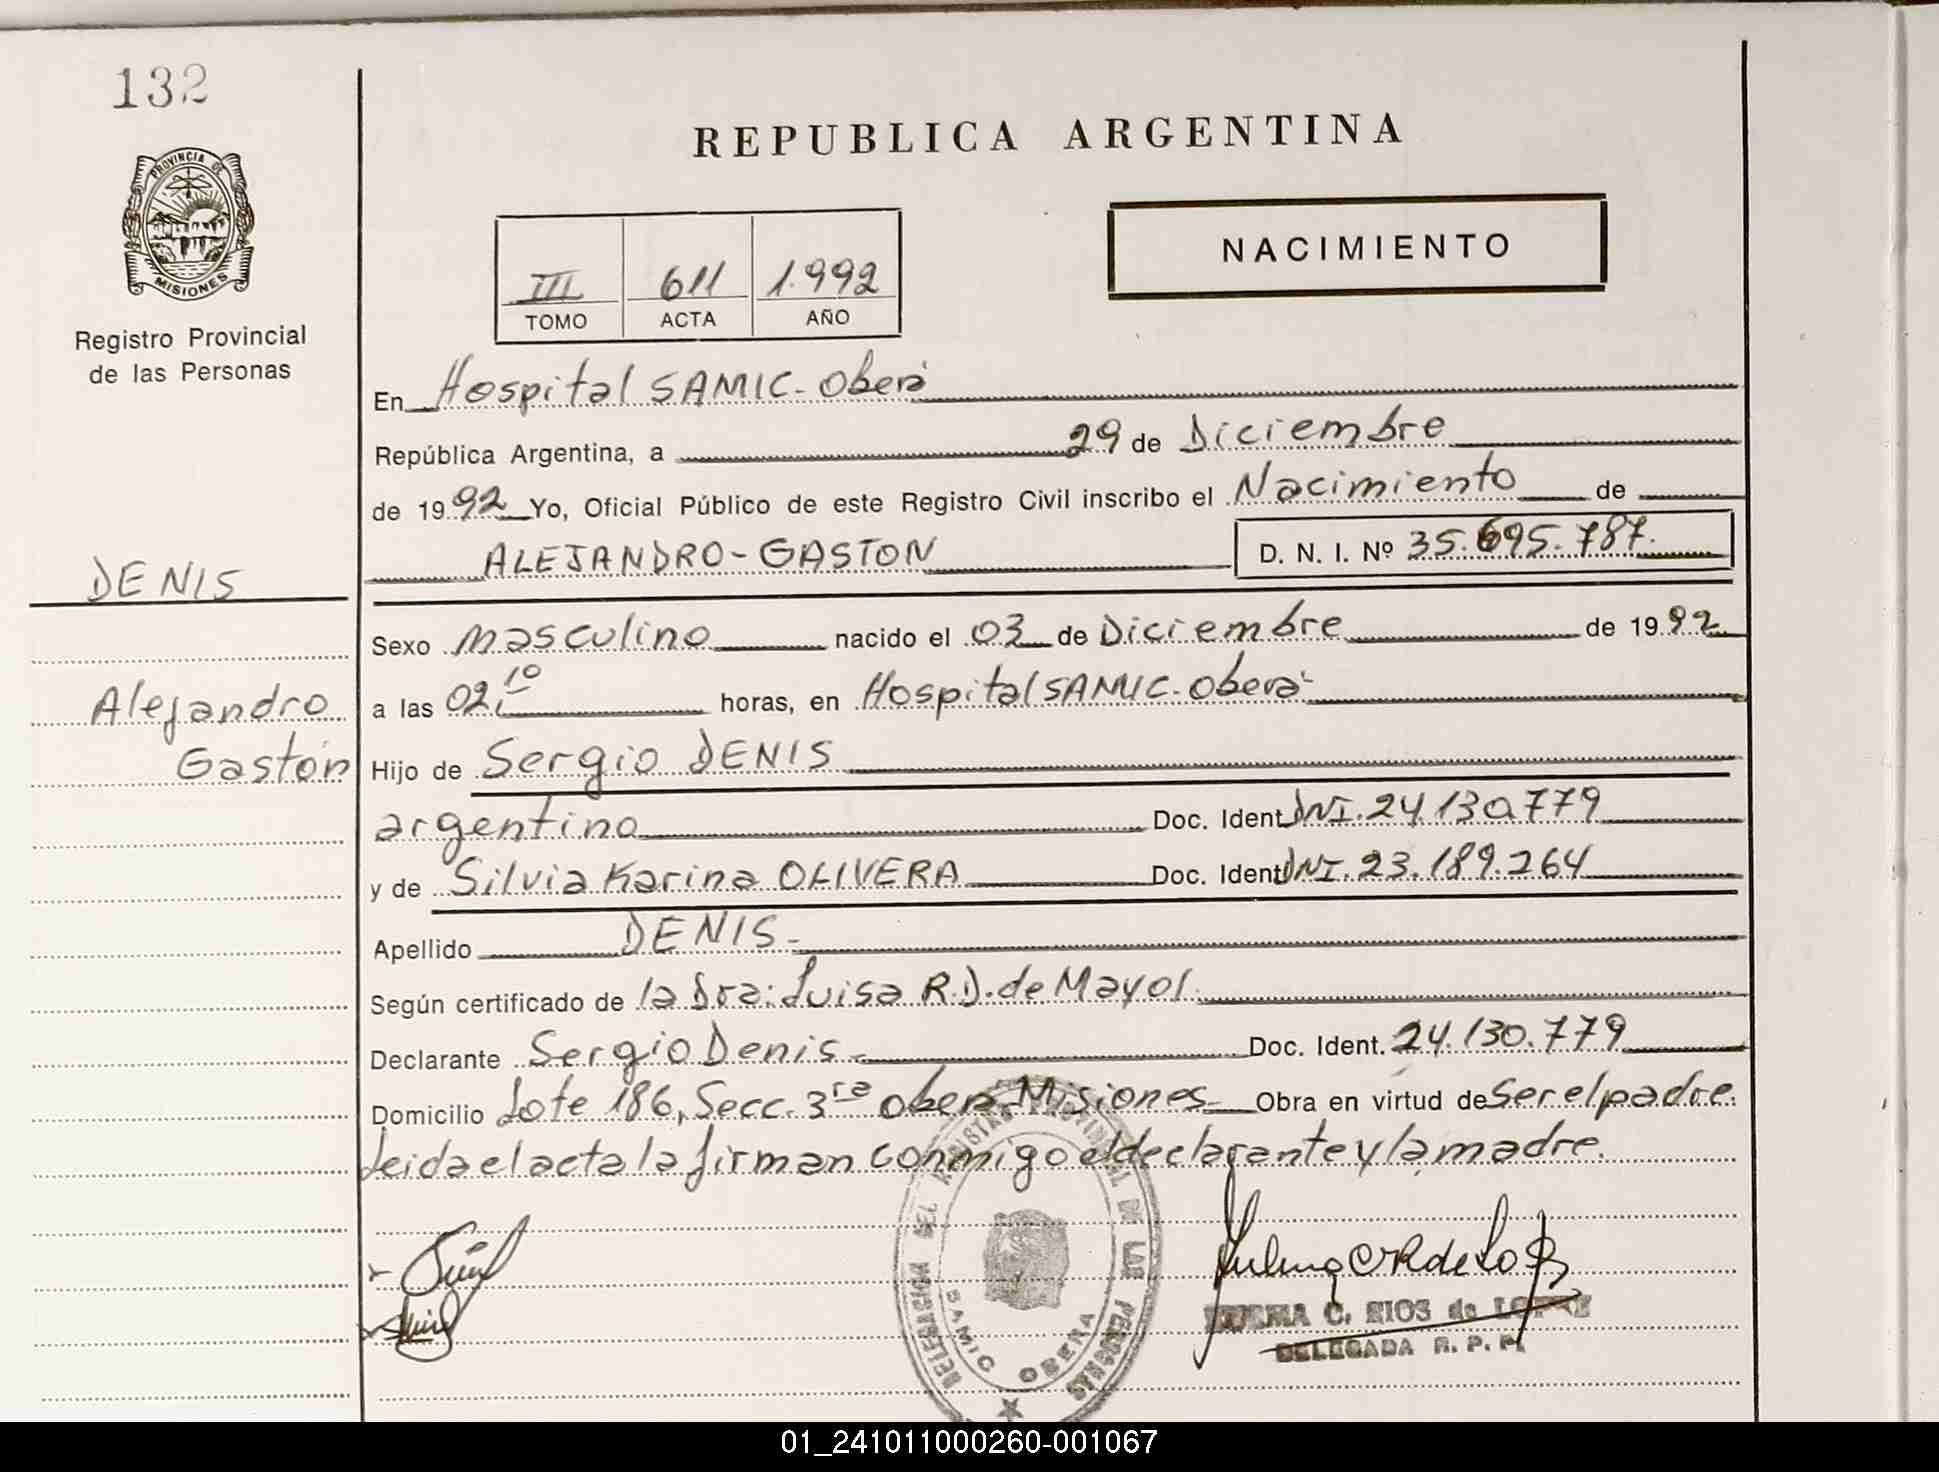 132
PROVINCIA DE
MISIONES
Registro Provincial
de las Personas
REPUBLICA ARGENTINA
NACIMIENTO
III 611 1.992
TOMO ACTA AÑO
En Hospital SAMIC - Oberá
República Argentina, a 29 de Diciembre
de 1992 Yo, Oficial Público de este Registro Civil inscribo el Nacimiento de
ALEJANDRO - GASTON D. N. I. Nº 35.695.787.
DENIS
Alejandro
Gastón
Sexo masculino nacido el 03 de Diciembre de 1992
a las 02,10 horas, en Hospital SAMIC. Oberá
Hijo de Sergio DENIS
argentino Doc. Ident. DNI. 24.130.779
y de Silvia Karina OLIVERA Doc. Ident. DNI. 23.189.264
Apellido DENIS -
Según certificado de la Dra: Luisa R.D. de Mayol.
Declarante Sergio Denis - Doc. Ident. 24.130.779
Domicilio Lote 186, Secc. 3ra Oberá - Misiones - Obra en virtud de Ser el padre.
Leida el acta la firman conmigo el declarante y la madre.
DELEGACION DEL REGISTRO PROVINCIAL DE LAS PERSONAS
SAMIC OBERA
NORMA C. RIOS de LOPEZ
DELEGADA R. P. P.
01_241011000260-001067